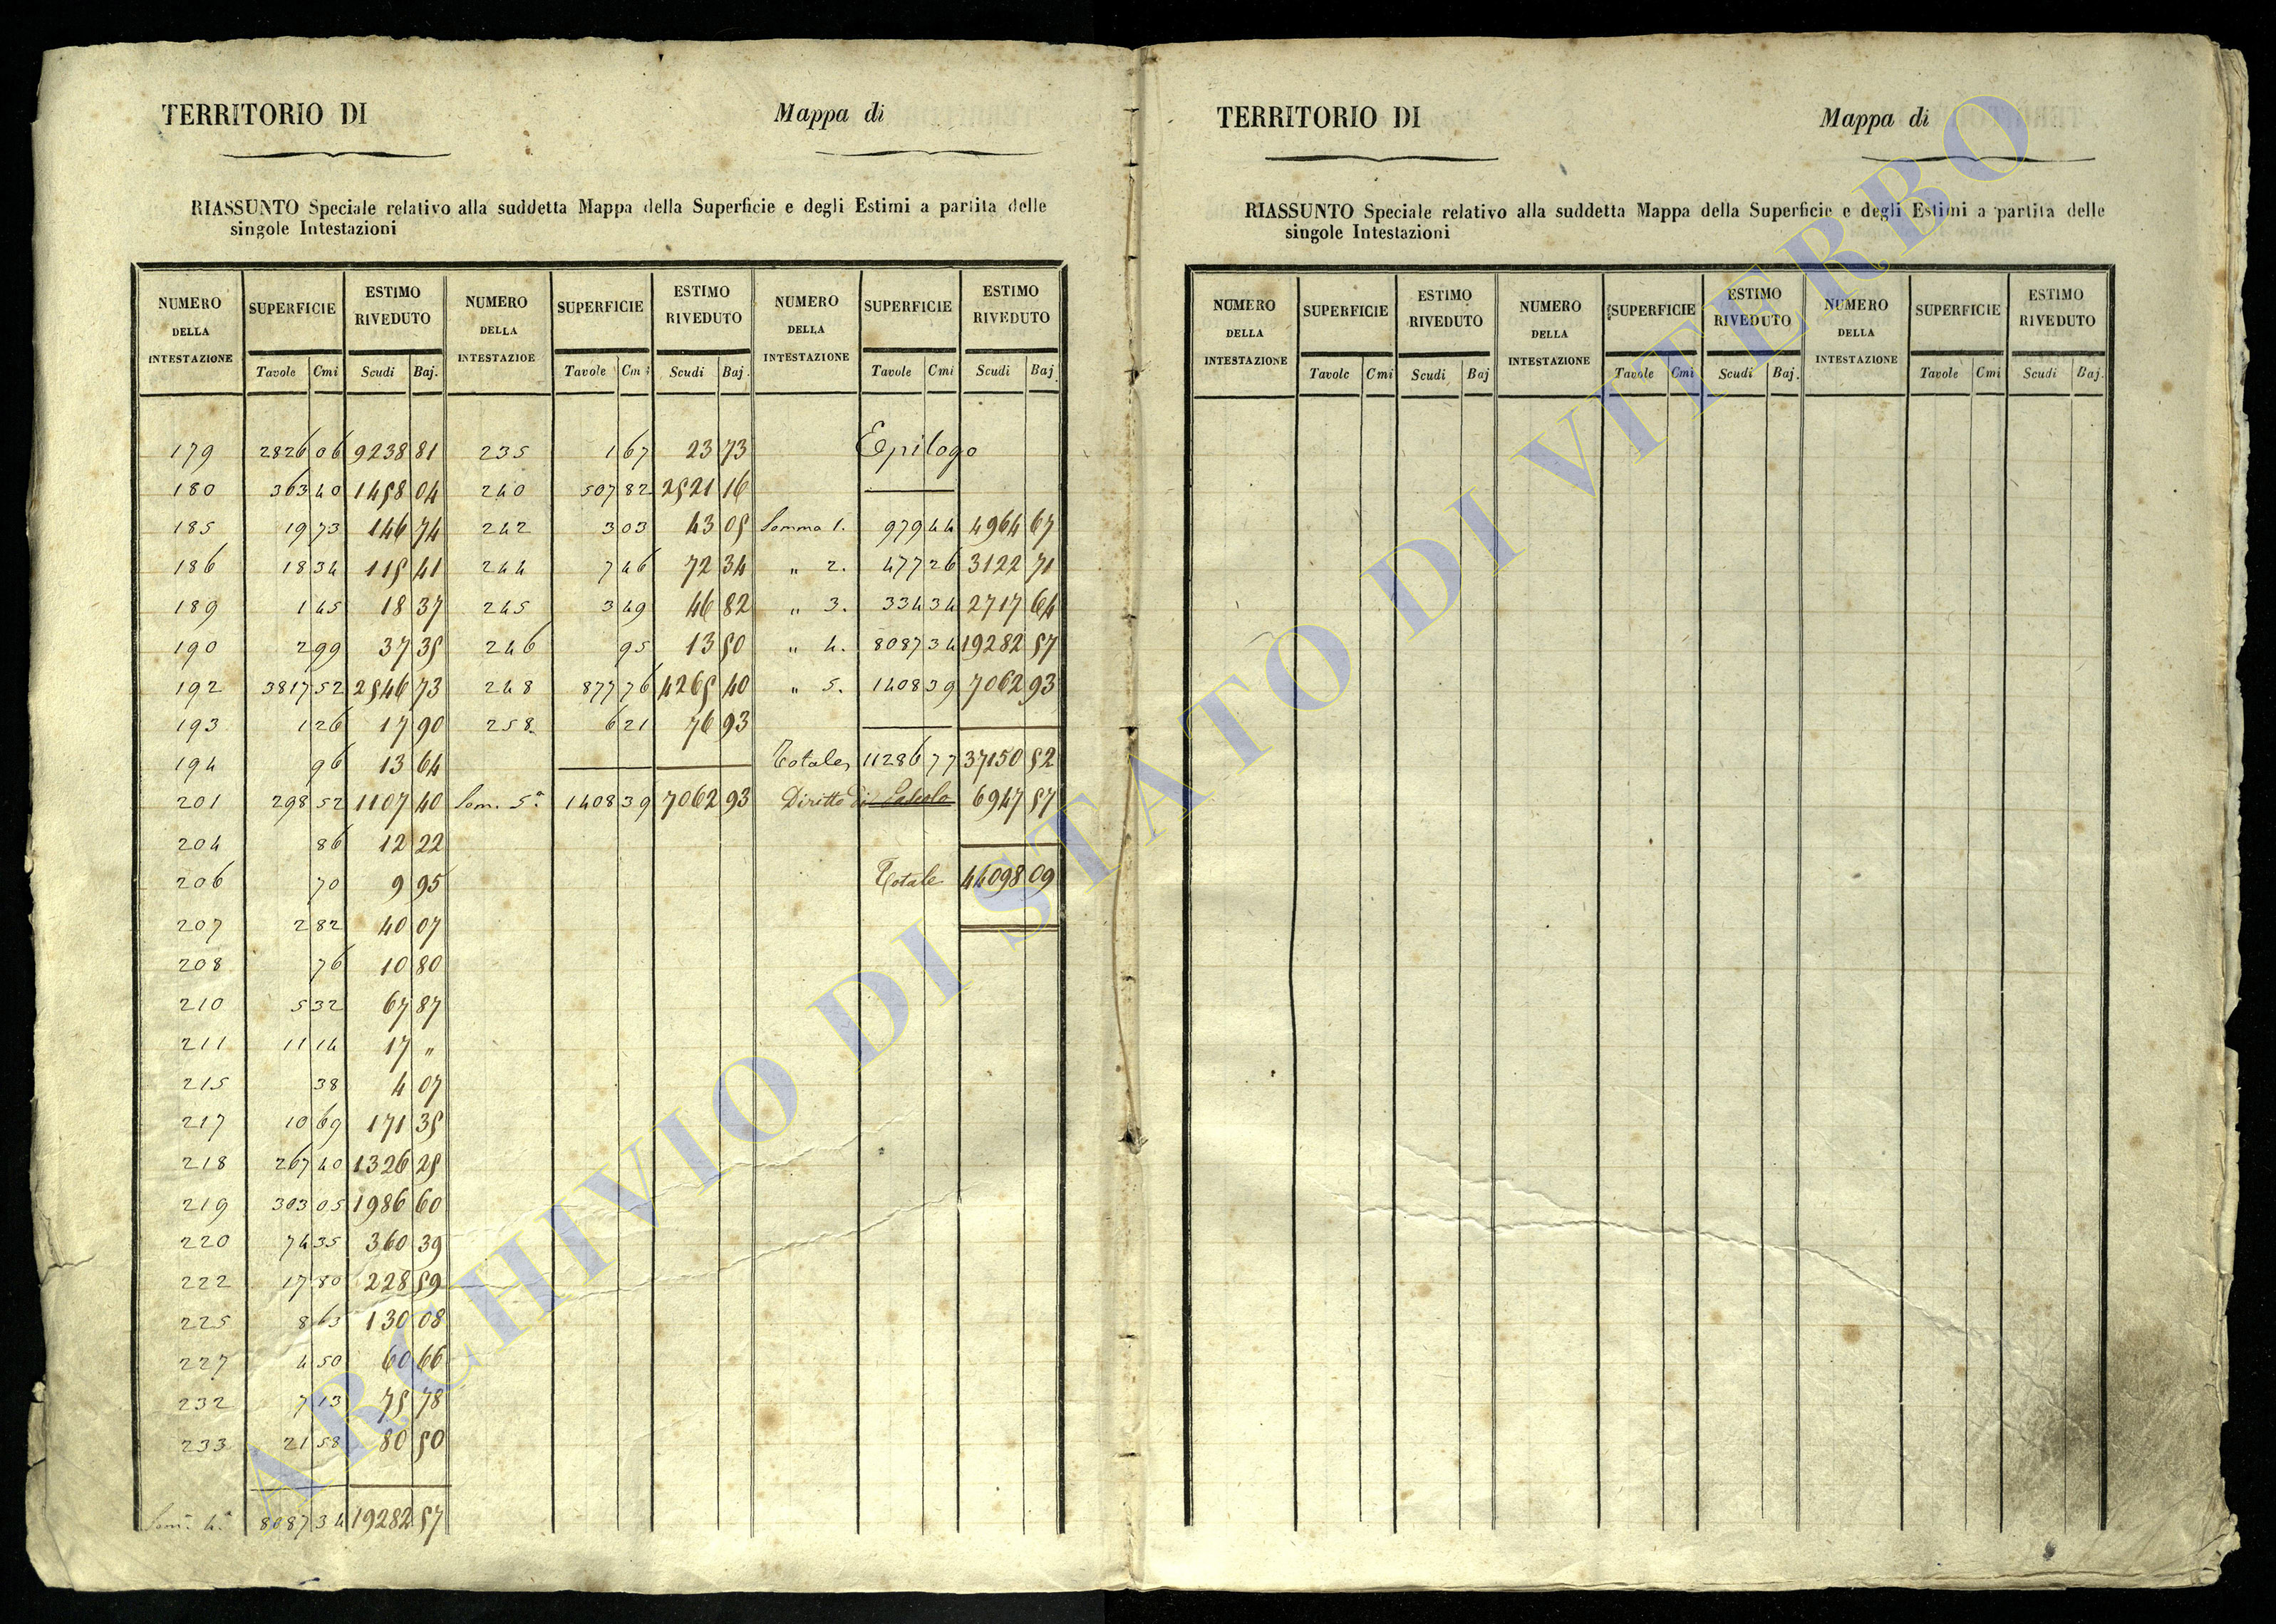 TERRITORIO DI Mappa di
RIASSUNTO Speciale relativo alla suddetta Mappa della Superficie e degli Estimi a partita delle
singole Intestazioni
NUMERO DELLA INTESTAZIONE SUPERFICIE ESTIMO RIVEDUTO NUMERO DELLA INTESTAZIOE SUPERFICIE ESTIMO RIVEDUTO NUMERO DELLA INTESTAZIONE SUPERFICIE ESTIMO RIVEDUTO
Tavole Cmi Scudi Baj. Tavole Cmi Scudi Baj. Tavole Cmi Scudi Baj.
179 2826 06 9238 81 235 1 67 23 73 Epilogo
180 363 40 1458 04 240 507 82 2521 16
185 19 73 146 74 242 3 03 43 05 Somma 1. 979 44 4964 67
186 18 34 115 41 244 7 46 72 34 " 2. 477 26 3122 71
189 1 45 18 37 245 3 49 46 82 " 3. 334 34 2717 64
190 2 99 37 35 246 95 13 50 " 4. 8087 34 19282 57
192 3817 52 2546 73 248 877 76 4265 40 " 5. 1408 39 7062 93
193 1 26 17 90 258 6 21 76 93
194 96 13 64 Totale 11286 77 37150 52
201 298 52 1107 40 Som. 5ª 1408 39 7062 93 Diritto di Pascolo 6947 57
204 86 12 22
206 70 9 95 Totale 44098 09
207 2 82 40 07
208 76 10 80
210 5 32 67 87
211 11 14 17 "
215 38 4 07
217 10 69 171 35
218 267 40 1326 25
219 303 05 1986 60
220 74 35 360 39
222 17 80 228 59
225 8 63 130 08
227 4 50 60 66
232 7 13 75 78
233 21 58 80 50
Som. 4ª 8087 34 19282 57
TERRITORIO DI Mappa di
RIASSUNTO Speciale relativo alla suddetta Mappa della Superficie e degli Estimi a partita delle
singole Intestazioni
NUMERO DELLA INTESTAZIONE SUPERFICIE ESTIMO RIVEDUTO NUMERO DELLA INTESTAZIONE SUPERFICIE ESTIMO RIVEDUTO NUMERO DELLA INTESTAZIONE SUPERFICIE ESTIMO RIVEDUTO
Tavole Cmi Scudi Baj Tavole Cmi Scudi Baj. Tavole Cmi Scudi Baj.
ARCHIVIO DI STATO DI VITERBO